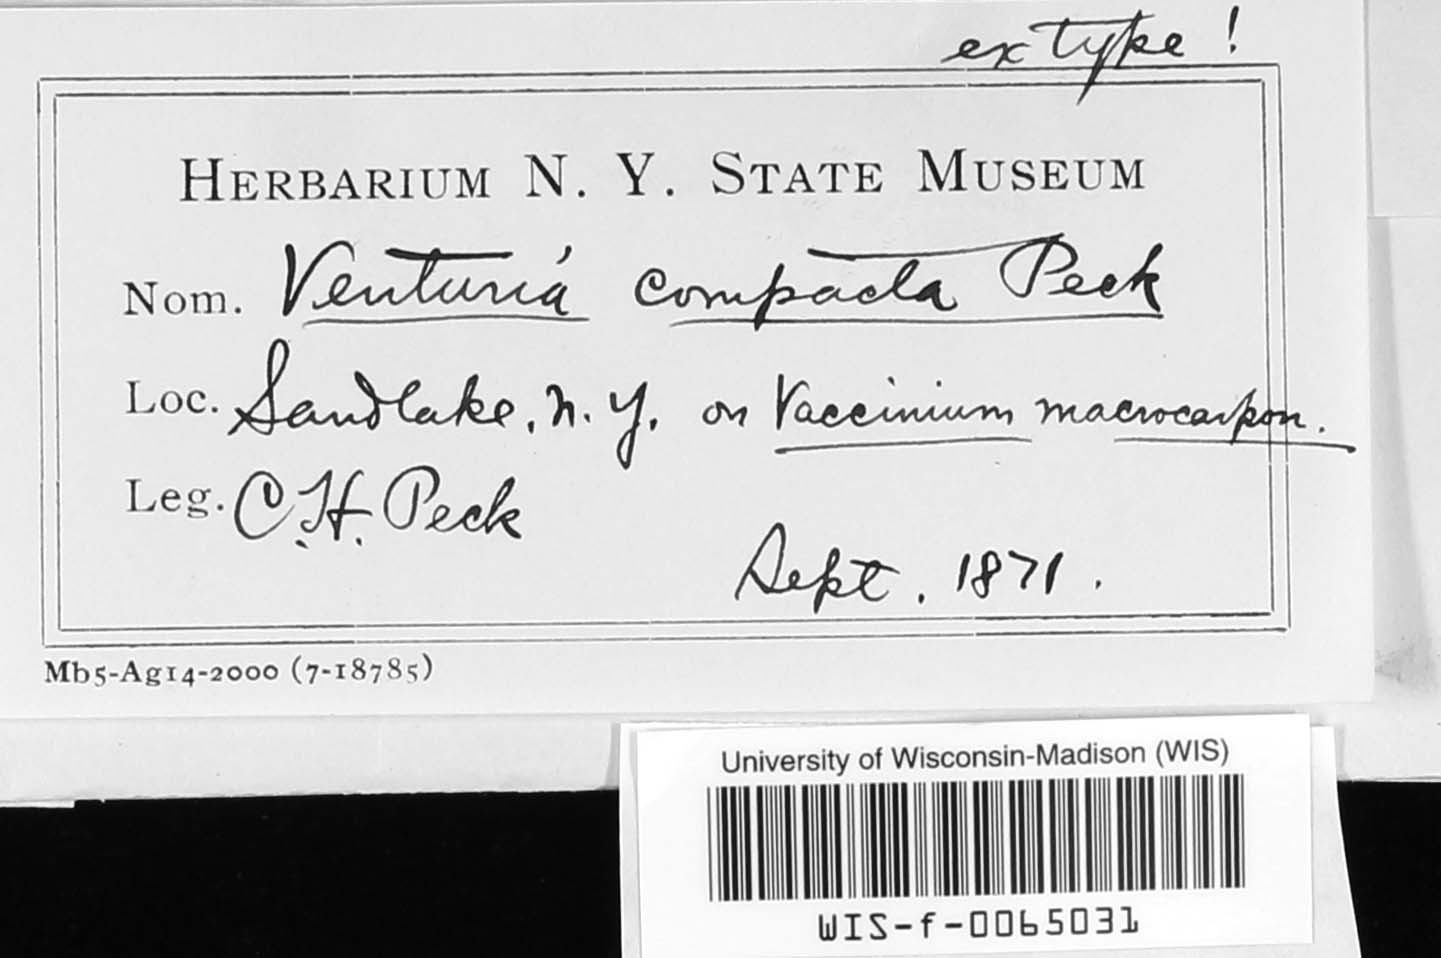 ex type!
HERBARIUM N. Y. STATE MUSEUM
Nom. Venturia compacta Peck
Loc. Sandlake, N. Y. on Vaccinium macrocarpon.
Leg. C. H. Peck
Sept. 1871.
Mb5-Ag14-2000 (7-18785)
University of Wisconsin-Madison (WIS)
WIS-f-0065031